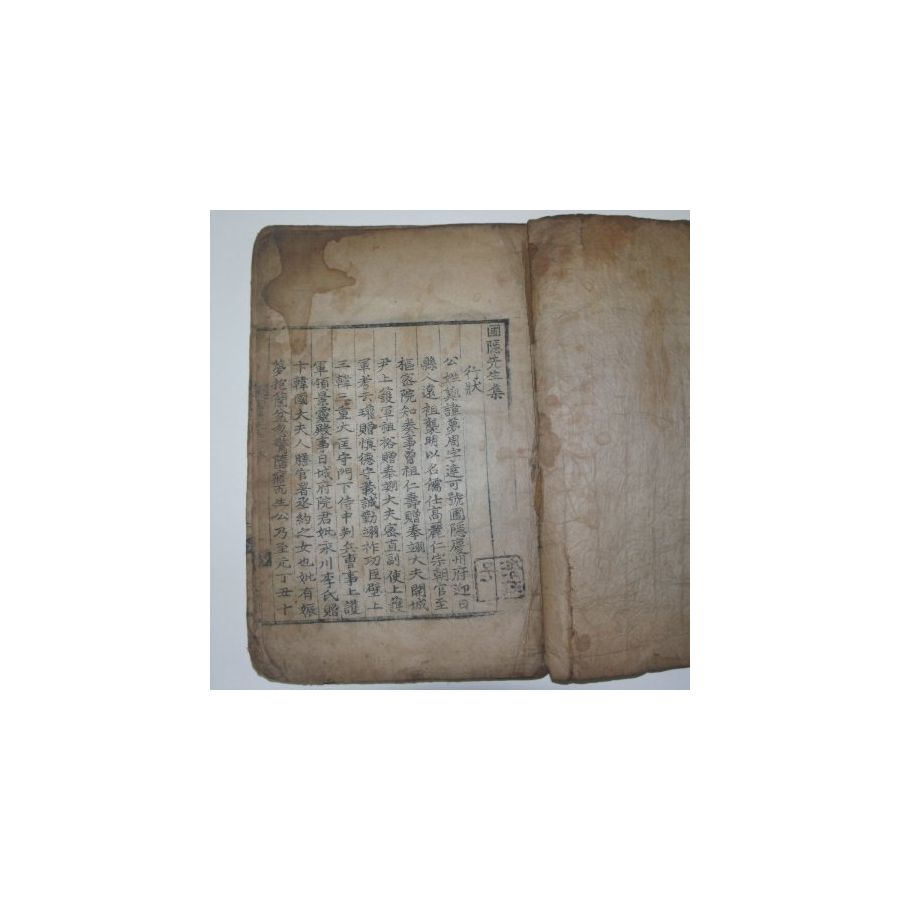 圃隠先生集
行狀
公姓鄭諱夢周字達可號圃隠慶州府迎日
縣人遠祖襲明以名儒仕高麗仁宗朝官至
樞密院知奏事曾祖仁壽贈奉翊大夫開城
尹上護軍祖裕贈奉翊大夫密直副使上護
軍考云瓘贈慎德守義誠勤翊祚功臣壁上
三韓三重大匡守門下侍中判兵曹事上護
軍領景靈殿事日城府院君妣永川李氏贈
卞韓國大夫人膳官署丞約之女也妣有娠
夢抱蘭盆忽驚墮寤而生公乃至元丁丑十